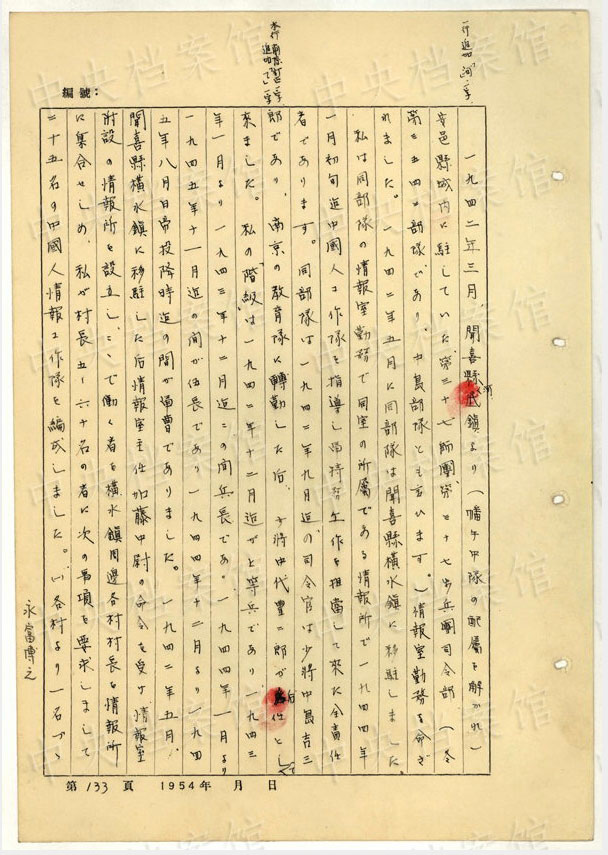 一行追加「河」字
本行「南京」訂正字
追加「て」一字
編號：
一九四二年三月、聞喜縣河底鎮より（幡年中隊の配屬を解かれ）
安邑縣城内に駐していた第三十七師團第三十七步兵團司令部（冬
第三五四一部隊であり、中島部隊とも言います。）情報室勤務を命ぜ
られました。一九四二年五月に同部隊は聞喜縣橫水鎮に移駐しました。
私は同部隊の情報室勤務で同室の所屬である情報所で一九四四年
一月初旬迄中國人工作隊を指導し當時工作を担當して來た全責任
者であります。同部隊は一九四二年九月迄の司令官は少將中島吉三
郎であり、南京の教育隊に轉勤した后、少將中代豊二郎が后任として
來ました。私の階級は一九四二年十二月迄が上等兵であり一九四三
年一月より一九四三年十二月迄この間兵長であ。一九四四年一月より
一九四五年十一月迄の間が伍長であり一九四四年十二月より一九四
五年八月日帝投降時迄の間が軍曹でありました。一九四二年五月、
聞喜縣橫水鎮に移駐した后情報室主任加藤中尉の命令を受け情報室
附設の情報所を設立し、ここで働く者を橫水鎮周邊各村村長を情報所
に集合せしめ、私が村長五〜六十名の者に次の事項を要求しまして
二十五名の中國人情報工作隊を編成しました。(1)各村より一名づゝ
永富博之
第133頁 1954年 月 日
中央档案馆